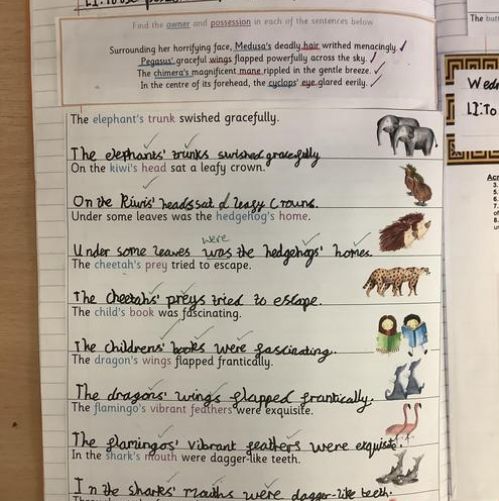 Find the owner and possession in each of the sentences below
Surrounding her horrifying face, Medusa's deadly hair writhed menacingly.
Pegasus' graceful wings flapped powerfully across the sky.
The chimera's magnificent mane rippled in the gentle breeze.
In the centre of its forehead, the cyclops' eye glared eerily.
The elephant's trunk swished gracefully.
The elephants' trunks swished gracefully
On the kiwi's head sat a leafy crown.
On the Kiwis' heads sat leafy crowns.
Under some leaves was the hedgehog's home.
were
Under some leaves was the hedgehogs' homes.
The cheetah's prey tried to escape.
The cheetahs' preys tried to escape.
The child's book was fascinating.
The childrens' books were fascinating.
The dragon's wings flapped frantically.
The dragons' wings flapped frantically.
The flamingo's vibrant feathers were exquisite.
The flamingos' vibrant feathers were exquisite.
In the shark's mouth were dagger-like teeth.
In the sharks' mouths were dagger-like teeth.
Wed
LI: To